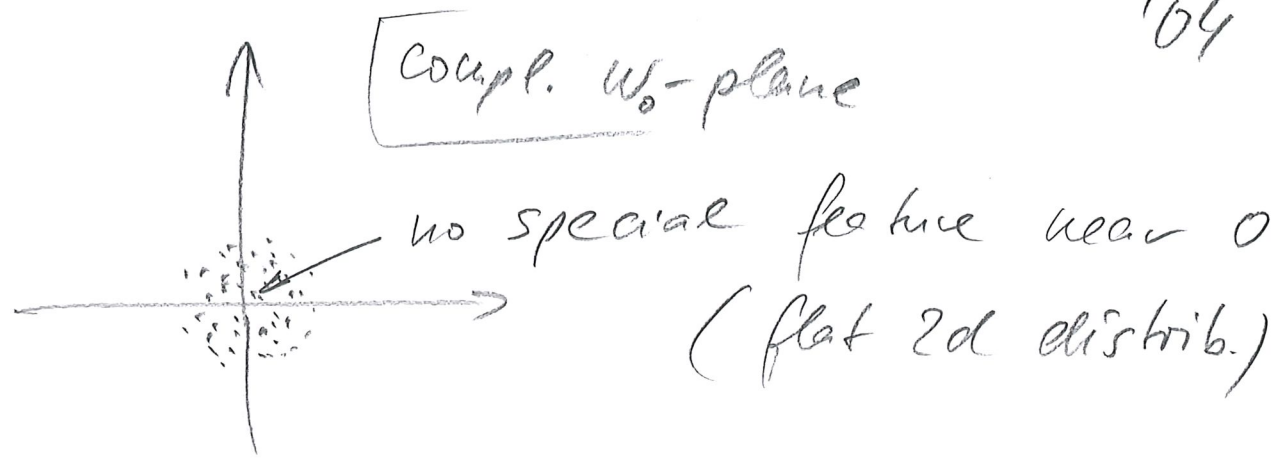 '04
compl. W₀-plane
no special feature near 0
(flat 2d distrib.)